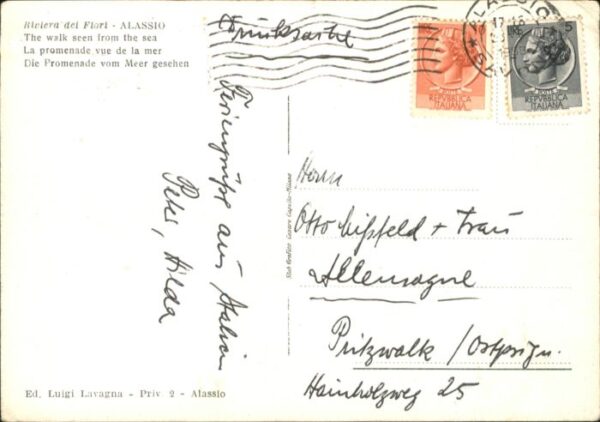 Riviera dei Fiori - ALASSIO
The walk seen from the sea
La promenade vue de la mer
Die Promenade vom Meer gesehen
Drucksache
Feriengrüße aus Italien
Peter, Hilda
ALASSIO
17-18
5
REPVBBLICA
ITALIANA
REPVBBLICA
ITALIANA
Stab Grafico Cesare Capello-Milano
Herrn
Otto + Frau
Allemagne
Pritzwalk / Ostprign.
Hainholzweg 25
Ed. Luigi Lavagna - Priv. 2 - Alassio